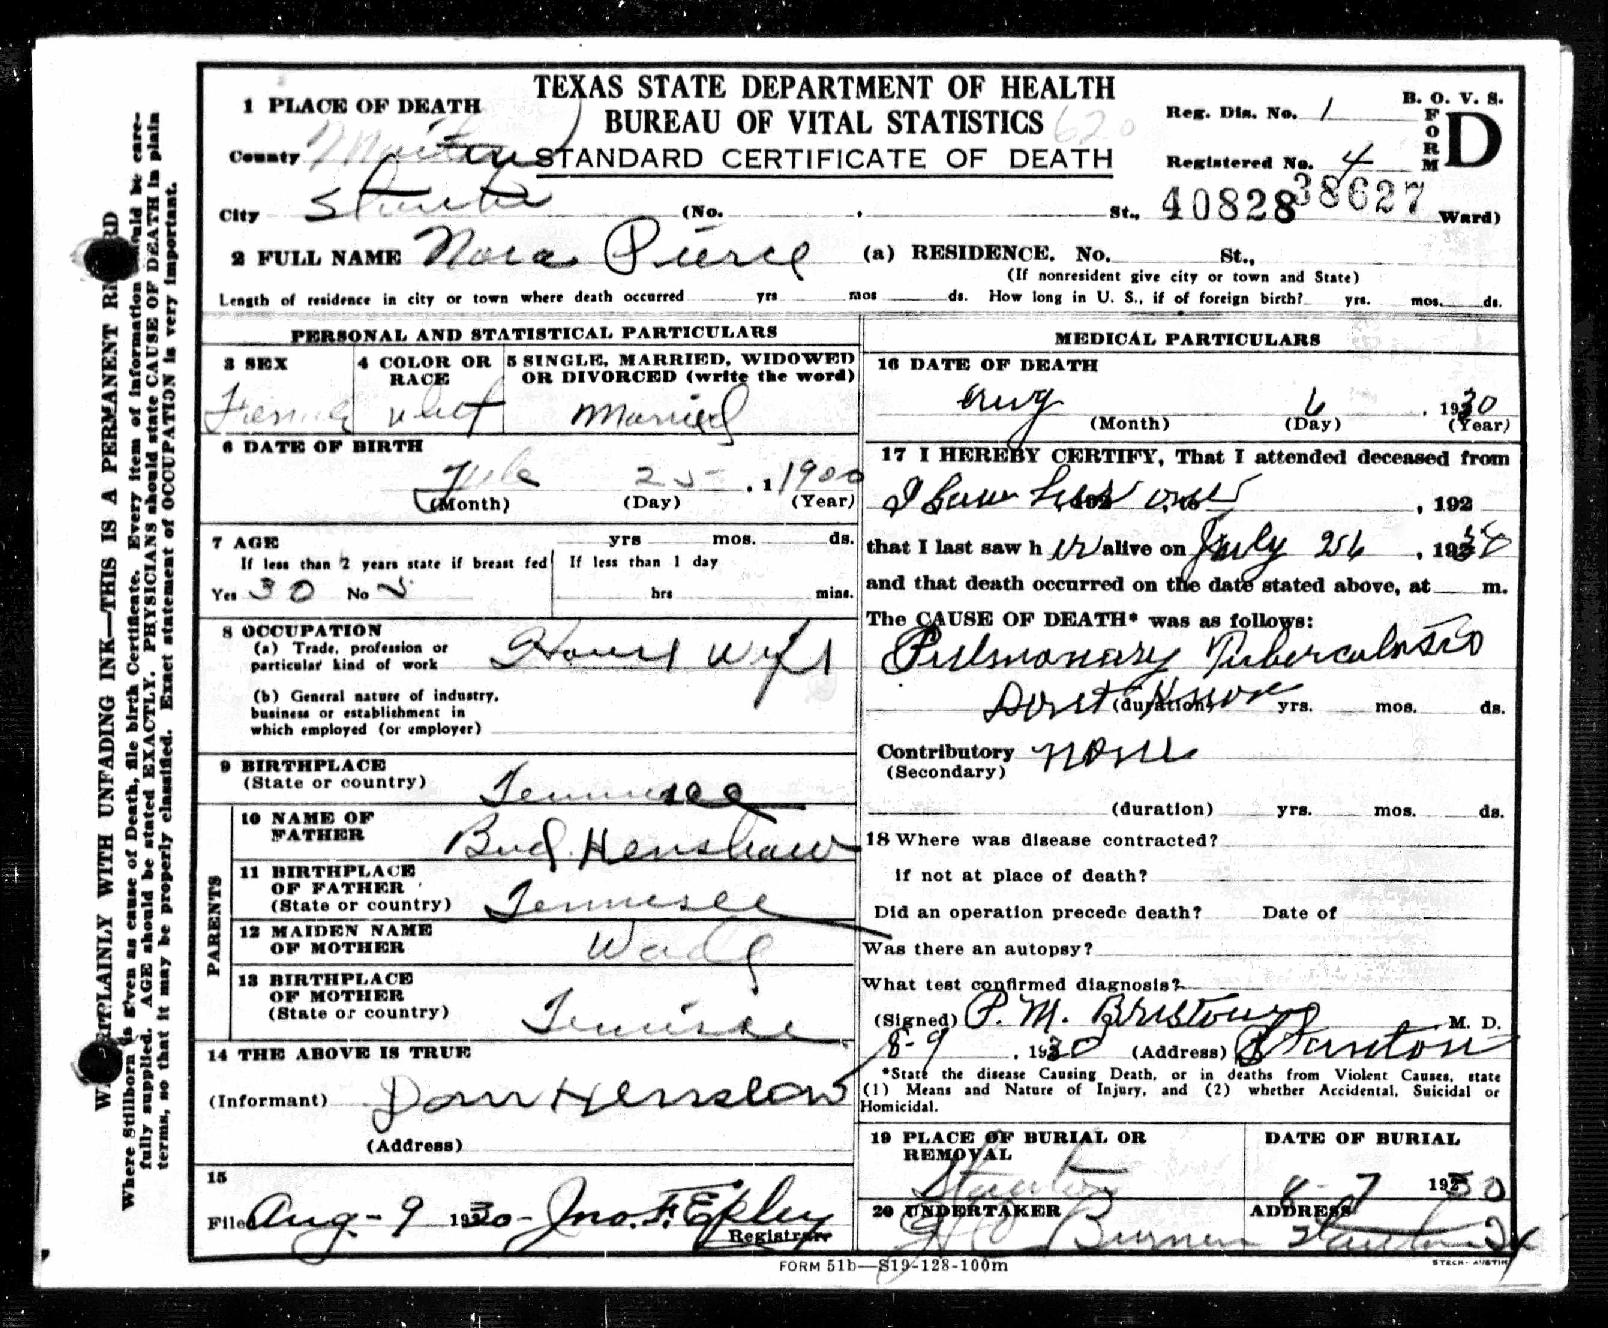 TEXAS STATE DEPARTMENT OF HEALTH
BUREAU OF VITAL STATISTICS
STANDARD CERTIFICATE OF DEATH
620
B. O. V. S.
FORM D
Reg. Dis. No. 1
Registered No. 4
40828 38627
1 PLACE OF DEATH
County Martin
City Stanton (No. , St., Ward)
2 FULL NAME Nora Pierce (a) RESIDENCE. No. St.,
(If nonresident give city or town and State)
Length of residence in city or town where death occurred yrs mos ds. How long in U. S., if of foreign birth? yrs. mos. ds.
PERSONAL AND STATISTICAL PARTICULARS
3 SEX
Female
4 COLOR OR RACE
whit
5 SINGLE, MARRIED, WIDOWED
OR DIVORCED (write the word)
Married
6 DATE OF BIRTH
25 , 1 1900
(Month) (Day) (Year)
7 AGE yrs mos. ds.
If less than 2 years state if breast fed
Yes 30 No 5
If less than 1 day
hrs mins.
8 OCCUPATION
(a) Trade, profession or
particular kind of work House Wife
(b) General nature of industry,
business or establishment in
which employed (or employer)
9 BIRTHPLACE
(State or country) Tennessee
PARENTS
10 NAME OF
FATHER Bud Henshaw
11 BIRTHPLACE
OF FATHER
(State or country) Tennesee
12 MAIDEN NAME
OF MOTHER Wade
13 BIRTHPLACE
OF MOTHER
(State or country) Tennisee
14 THE ABOVE IS TRUE
(Informant) Henslow
(Address)
15
Filed Aug - 9 1930 - Jno. F. Epley
Registrar
MEDICAL PARTICULARS
16 DATE OF DEATH
Aug 6 , 1930
(Month) (Day) (Year)
17 I HEREBY CERTIFY, That I attended deceased from
I saw her once , 192
that I last saw h er alive on July 26 , 1930
and that death occurred on the date stated above, at m.
The CAUSE OF DEATH* was as follows:
Pulmonary Tuberculosis
Dont Know (duration) yrs. mos. ds.
Contributory none
(Secondary)
(duration) yrs. mos. ds.
18 Where was disease contracted?
if not at place of death?
Did an operation precede death? Date of
Was there an autopsy?
What test confirmed diagnosis?
(Signed) P. M. Bristow M. D.
8-9 , 1930 (Address) Stanton
*State the disease Causing Death, or in deaths from Violent Causes, state
(1) Means and Nature of Injury, and (2) whether Accidental, Suicidal or
Homicidal.
19 PLACE OF BURIAL OR
REMOVAL
Stanton
DATE OF BURIAL
8-7 1930
20 UNDERTAKER
ADDRESS
Stanton Tx
FORM 51b—S19-128-100m
STECK-AUSTIN
WRITE PLAINLY WITH UNFADING INK—THIS IS A PERMANENT RECORD
Where Stillborn is given as cause of Death, file birth Certificate. Every item of information should be care-
fully supplied. AGE should be stated EXACTLY. PHYSICIANS should state CAUSE OF DEATH in plain
terms, so that it may be properly classified. Exact statement of OCCUPATION is very important.